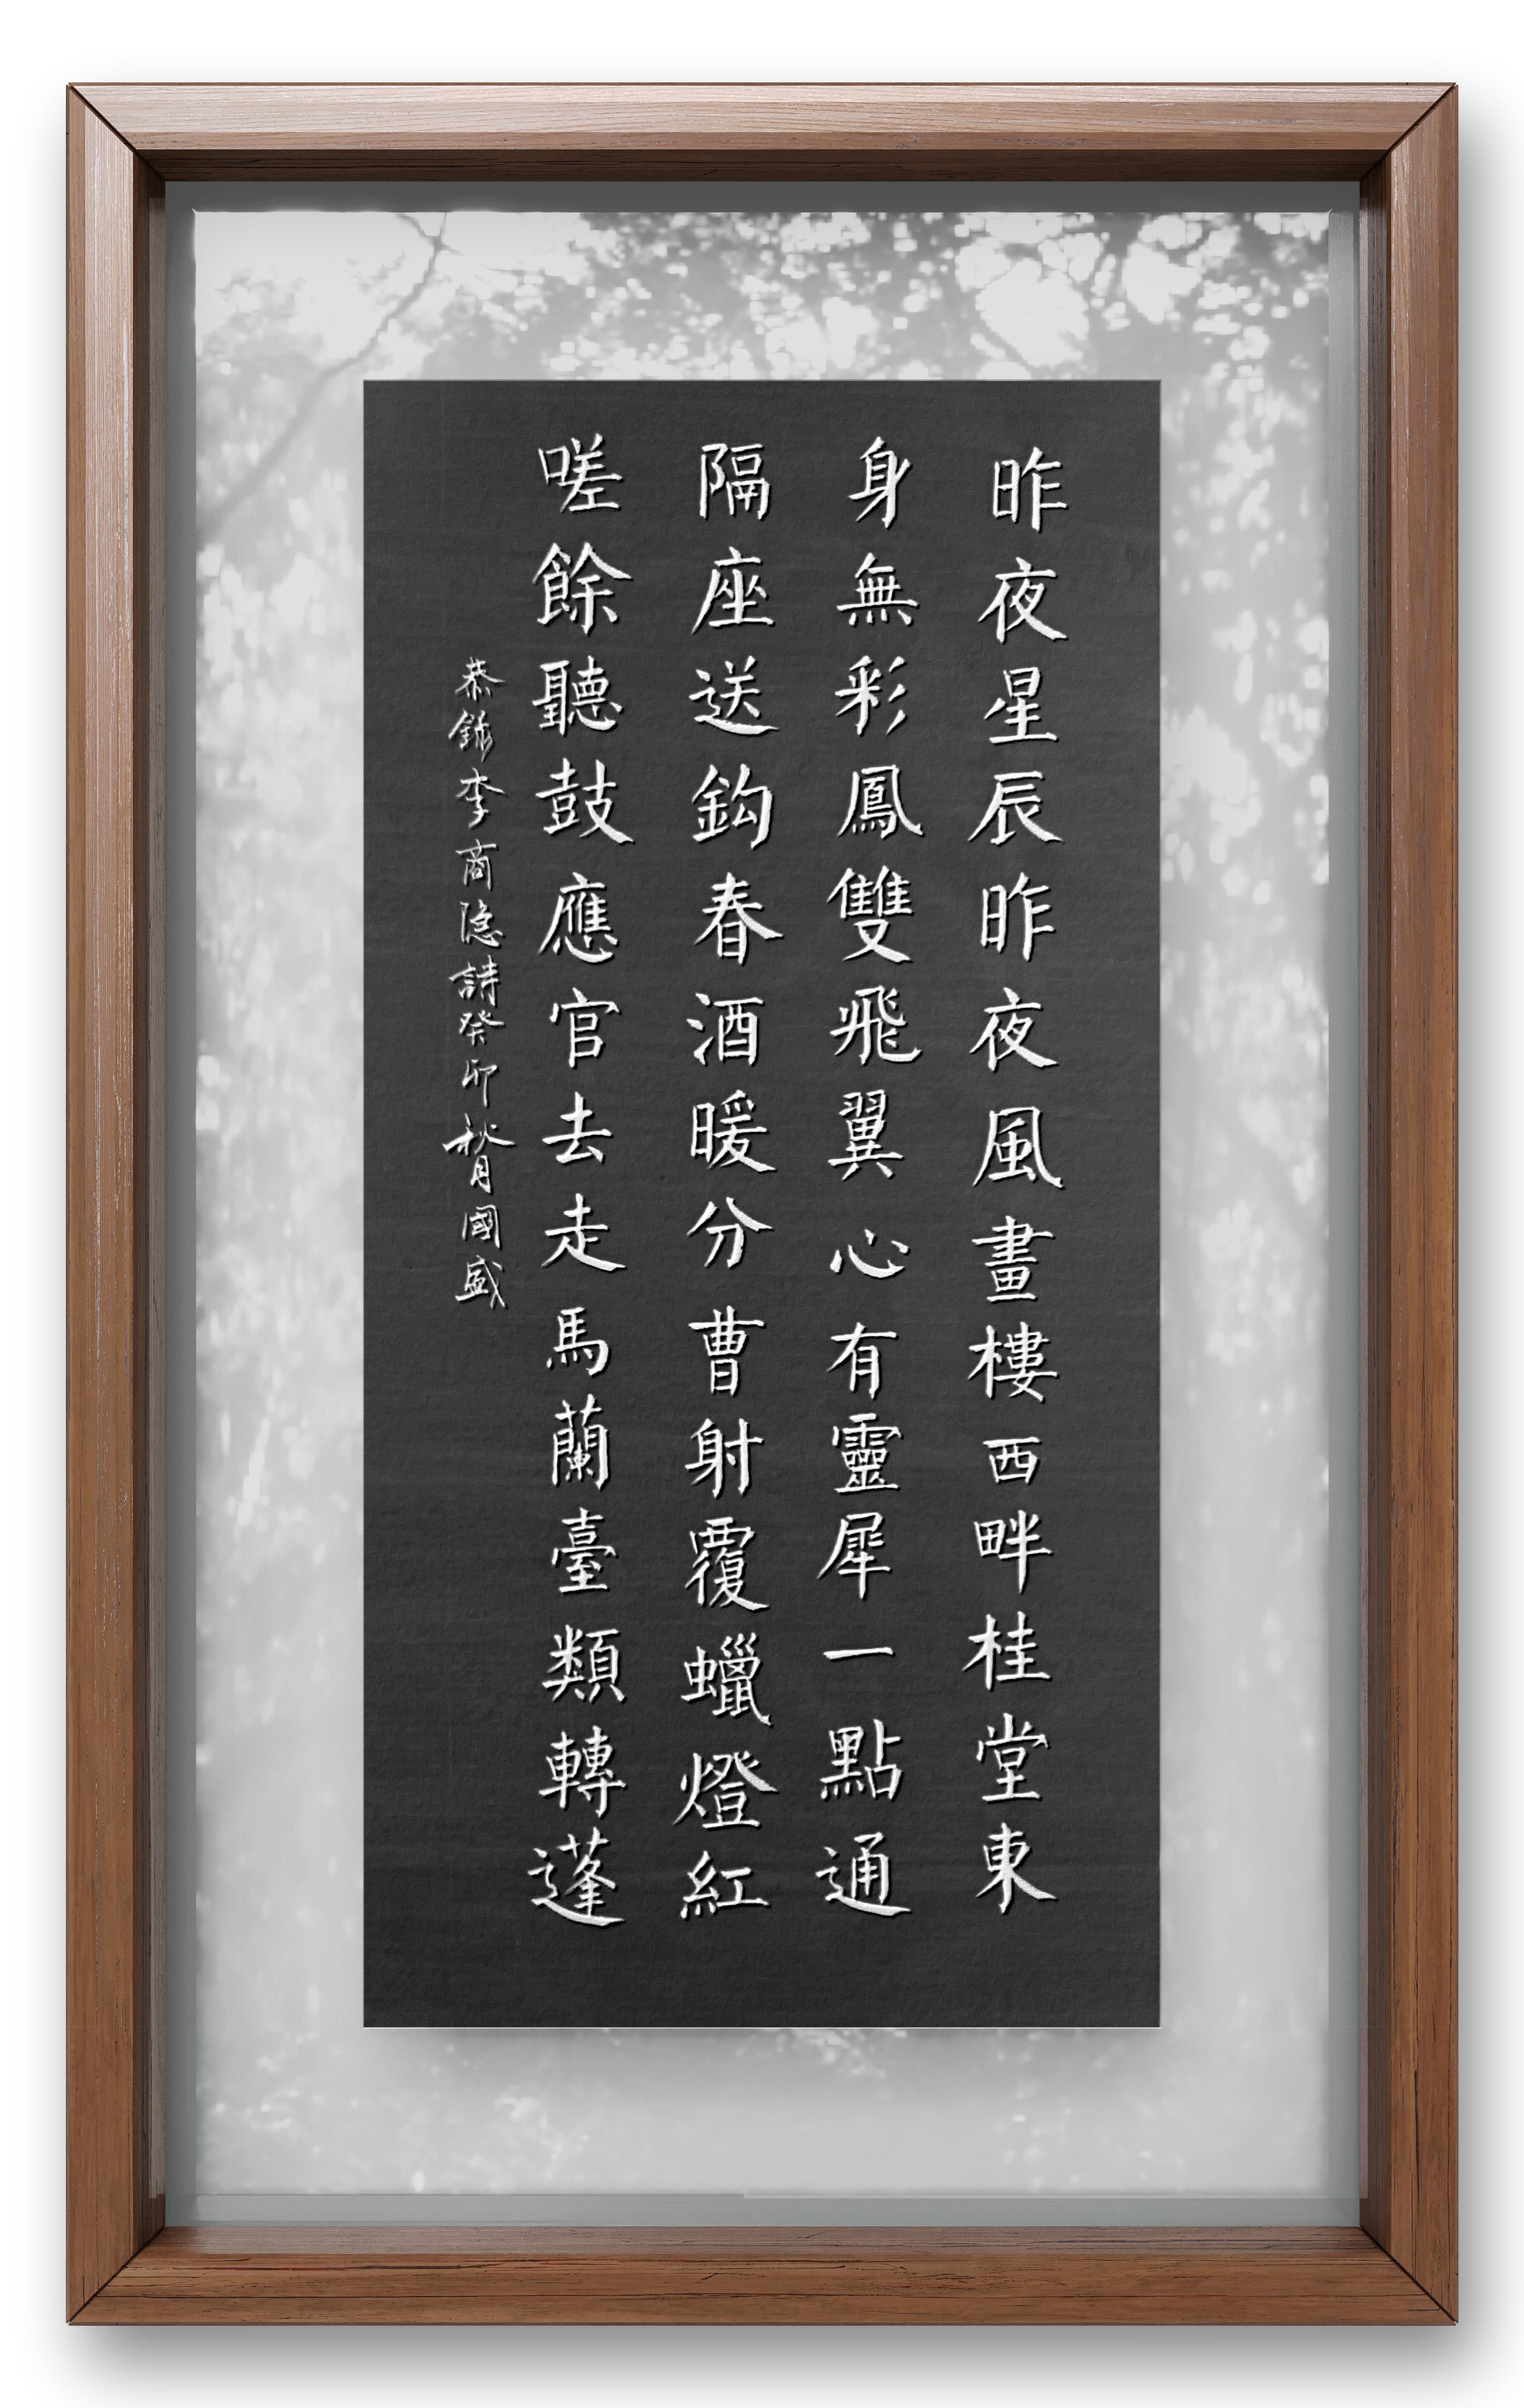 昨夜星辰昨夜風畫樓西畔桂堂東
身無彩鳳雙飛翼心有靈犀一點通
隔座送鈎春酒暖分曹射覆蠟燈紅
嗟餘聽鼓應官去走馬蘭臺類轉蓬
恭錄李商隐詩癸卯秋月國盛